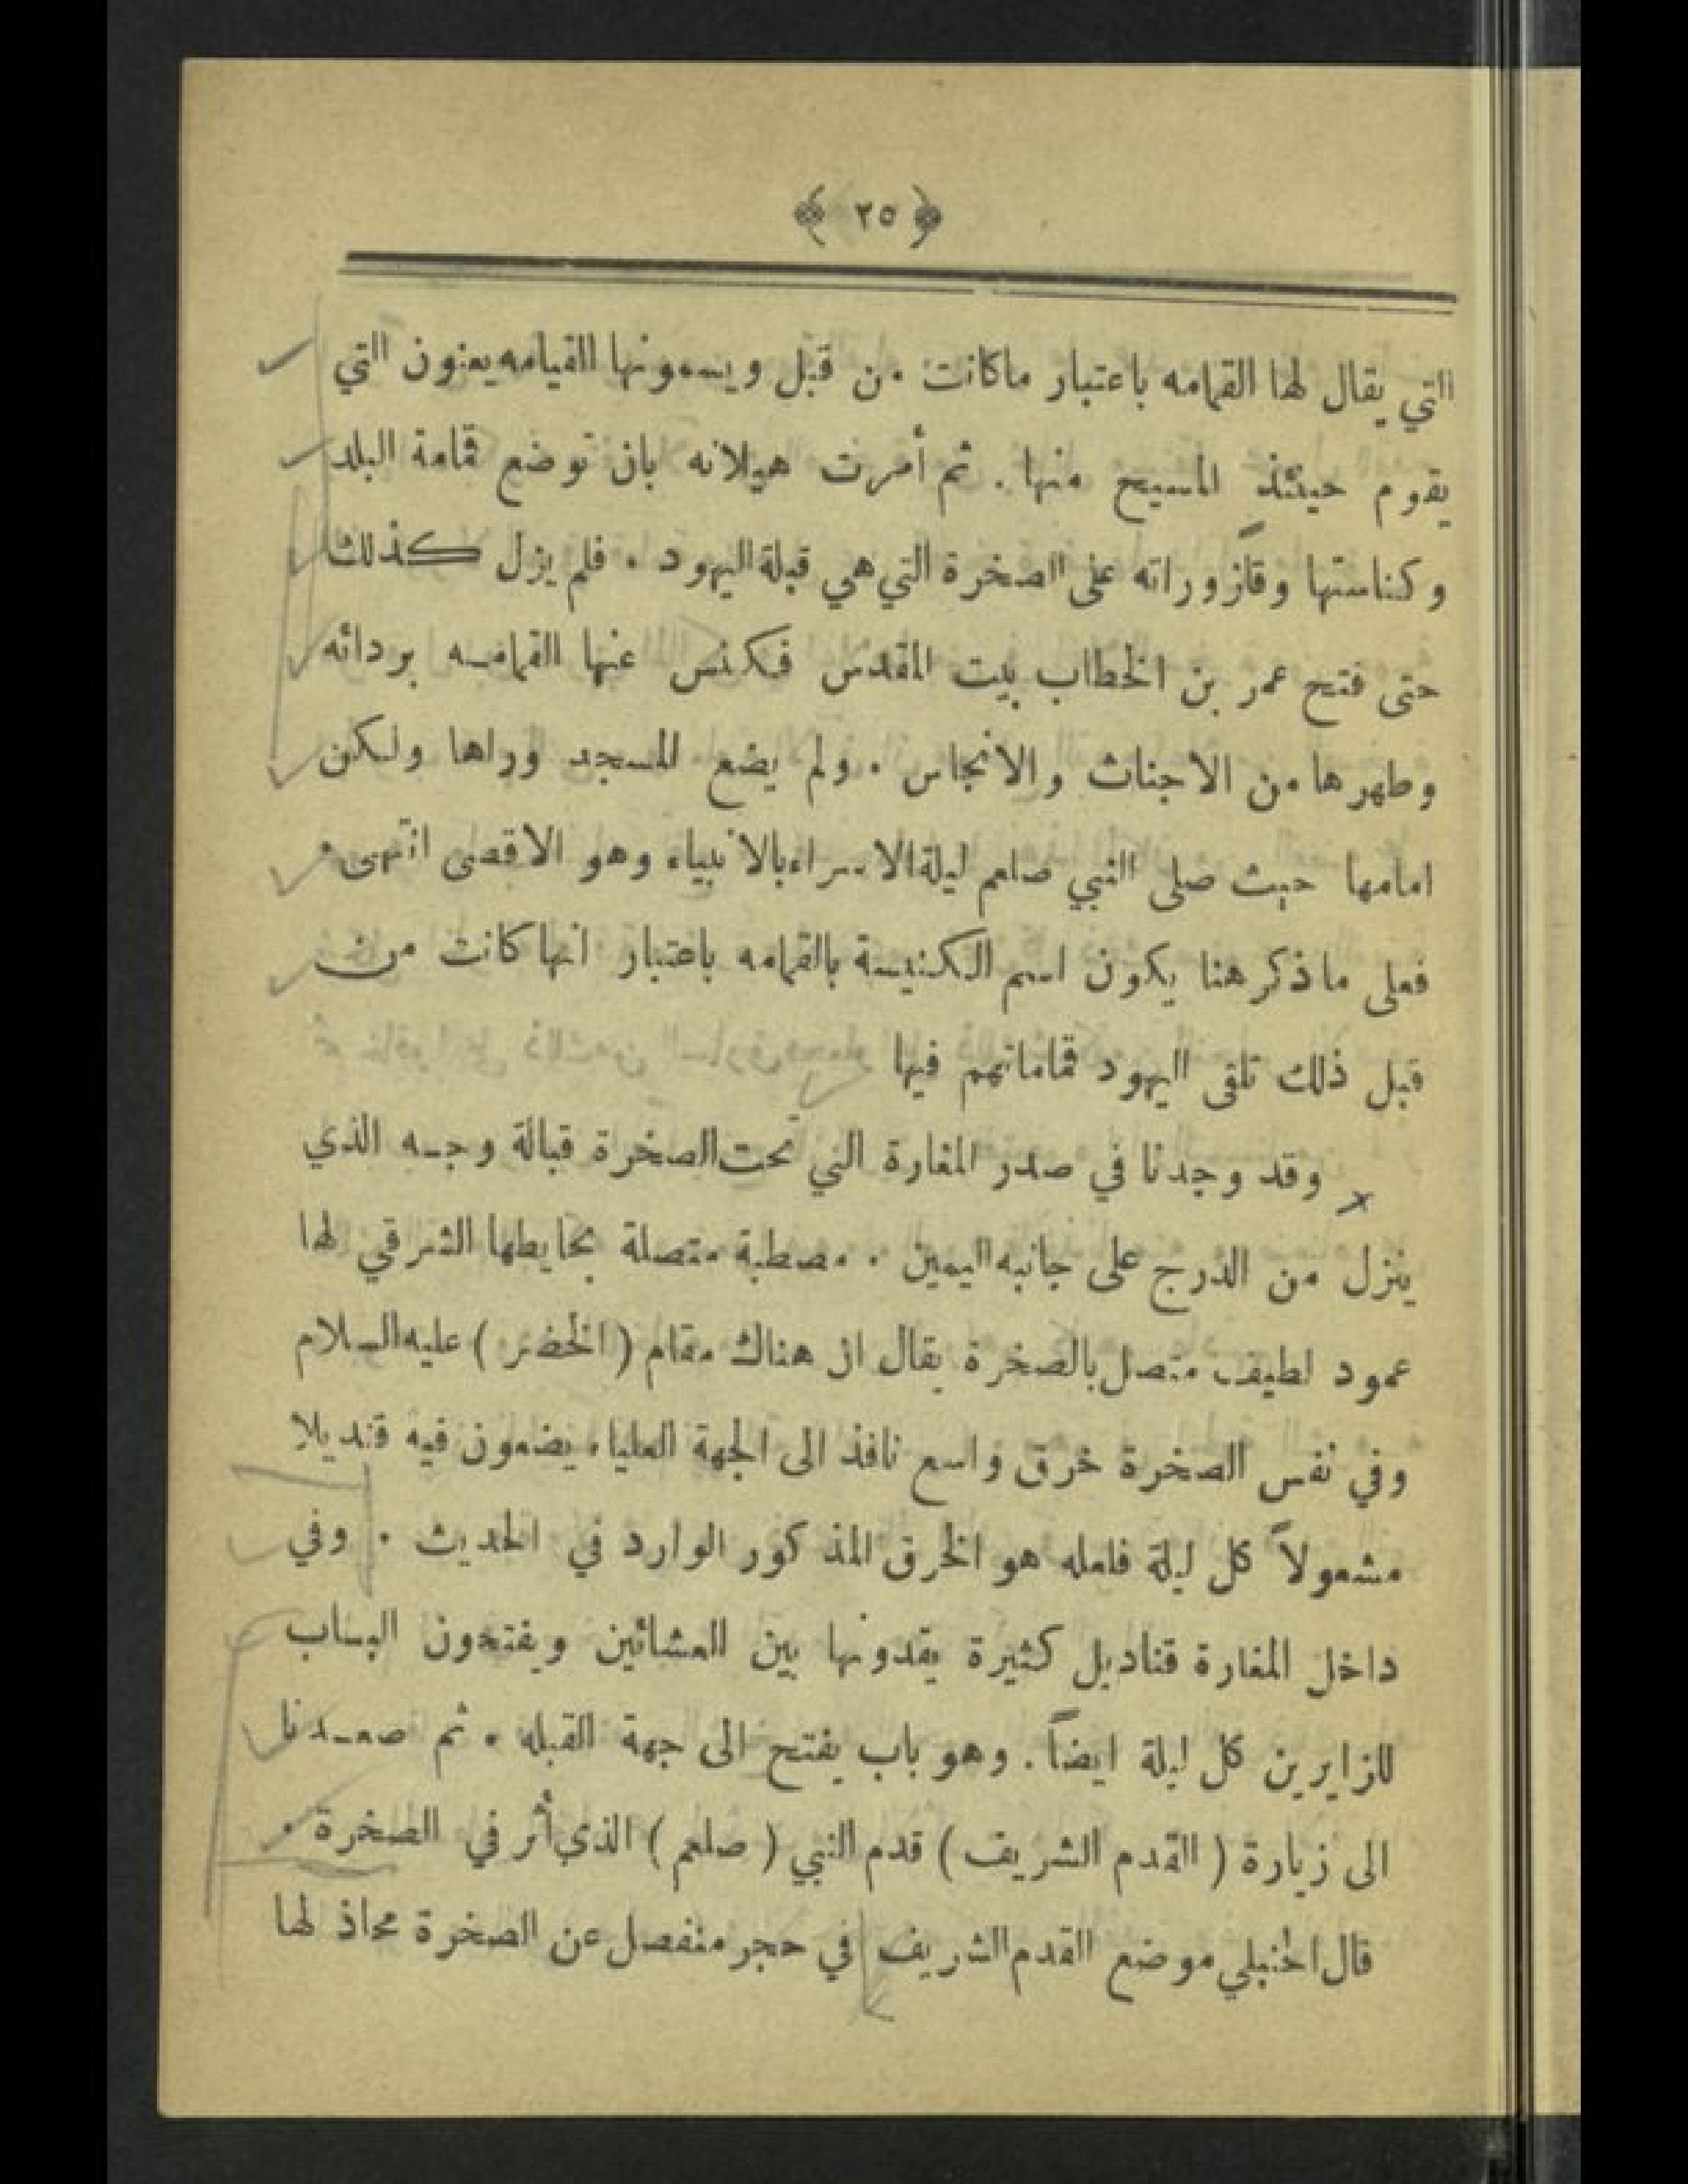 ﴿ ٢٥ ﴾
التي يقال لها القمامه باعتبار ماكانت من قبل ويسمونها القيامه يعنون التي
يقوم حينئذ المسيح منها . ثم أمرت هيلانه بان توضع قمامة البلد
وكناستها وقازوراته على الصخرة التي هي قبلة اليهود . فلم يزل كذلك
حتى فتح عمر بن الخطاب بيت المقدس فكنس عنها القمامـه بردائه
وطهرها من الاجناث والانجاس . ولم يضع المسجد وراها ولكن
امامها حيث صلى النبي صلعم ليلة الاسراء بالانبياء وهو الاقصى انتهى .
فعلى ماذكر هنا يكون اسم الكنيسة بالقمامه باعتبار انها كانت من
قبل ذلك تلقى اليهود قماماتهم فيها
وقد وجدنا في صدر المغارة التي تحت الصخرة قبالة وجـه الذي
ينزل من الدرج على جانبه اليمين . مصطبة متصلة بحايطها الشرقي لها
عمود لطيف متصل بالصخرة يقال ان هناك مقام ( الخضر ) عليه السلام
وفي نفس الصخرة خرق واسع نافذ الى الجهة العلياء يضعون فيه قنديلا
مشعولاً كل ليلة فلعله هو الخرق المذكور الوارد في الحديث . وفي
داخل المغارة قناديل كثيرة يقدونها بين العشائين ويفتحون البـاب
للزايرين كل ليلة ايضاً . وهو باب يفتح الى جهة القبله . ثم صعـدنا
الى زيارة ( القدم الشريف ) قدم النبي ( صلعم ) الذي أثر في الصخرة .
قال الحنبلي موضع القدم الشريف في حجر منفصل عن الصخرة محاذ لها